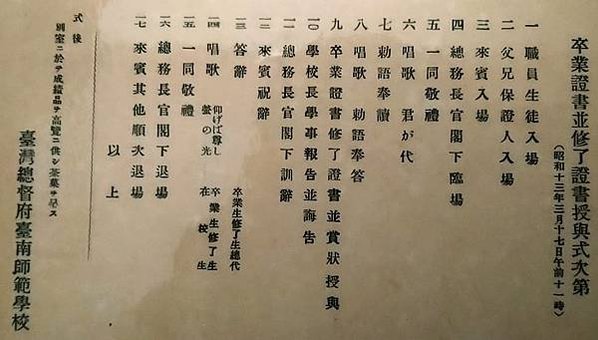 卒業證書並修了證書授與式次第
（昭和十三年三月十七日午前十一時）
一 職員生徒入場
二 父兄保證人入場
三 來賓入場
四 總務長官閣下臨場
五 一同敬禮
六 唱歌 君が代
七 勅語奉讀
八 唱歌 勅語奉答
九 卒業證書修了證書並賞狀授與
一〇 學校長學事報告並誨告
一一 總務長官閣下訓辭
一二 來賓祝辭
一三 答辭 卒業生修了生總代
一四 唱歌 仰げば尊し 卒業生修了生
螢の光 在校生
一五 一同敬禮
一六 總務長官閣下退場
一七 來賓其他順次退場
以上
式後
別室ニ於テ成績品ヲ高覽ニ供シ茶菓ヲ呈ス
臺灣總督府臺南師範學校